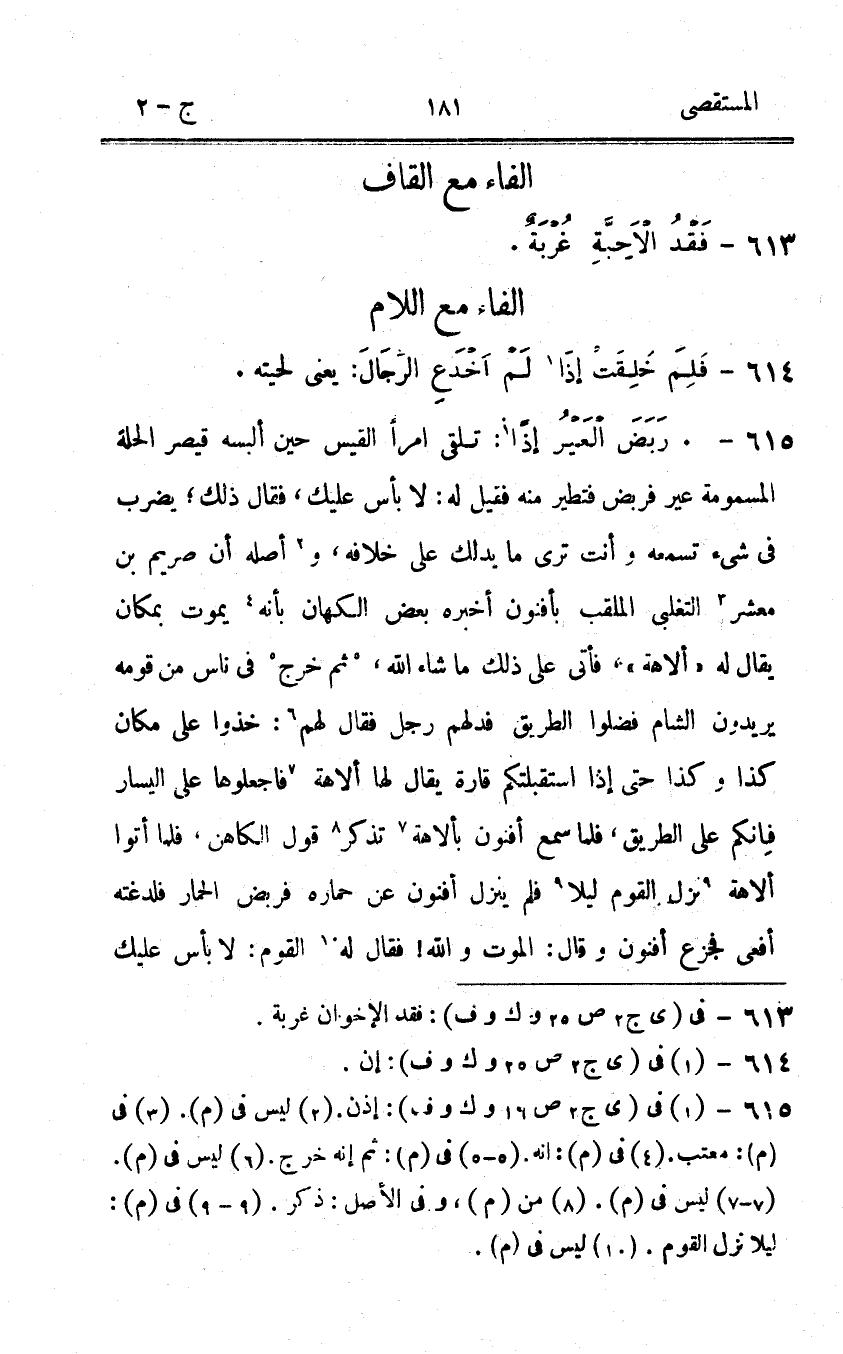 المستقصى ١٨١ ج - ٢
الفاء مع القاف
٦١٣ - فَقْدُ الْاَحِبَّةِ غُرْبَةٌ .
الفاء مع اللام
٦١٤ - فَلِمَ خَلِقَتْ إِذَا ١ لَمْ اَخْدَعِ الرِّجَالَ: يعنى لحيته .
٦١٥ - . رَبَضَ الْعَيْرُ إِذًا ١: تلقى امرأ القيس حين ألبسه قيصر الحلة
المسمومة عير فربض فتطير منه فقيل له: لا بأس عليك، فقال ذلك؛ يضرب
فى شىء تسمعه و أنت ترى ما يدلك على خلافه، و٢ أصله أن صريم بن
معشر٣ التغلبى الملقب بأفنون أخبره بعض الكهان بأنه٤ يموت بمكان
يقال له «ألاهة»، فأتى على ذلك ما شاء الله، ٥ثم خرج٥ فى ناس من قومه
يريدون الشام فضلوا الطريق فدلهم رجل فقال لهم٦: خذوا على مكان
كذا و كذا حتى إذا استقبلتكم قارة يقال لها ألاهة ٧فاجعلوها على اليسار
فإنكم على الطريق، فلما سمع أفنون بألاهة٧ تذكر٨ قول الكاهن، فلما أتوا
ألاهة ٩نزل القوم ليلا٩ فلم ينزل أفنون عن حماره فربض الحمار فلدغته
أفعى فجزع أفنون و قال: الموت و الله! فقال له١٠ القوم: لا بأس عليك
٦١٣ - فى (ى ج٢ ص ٢٥ و ك و ف): فقد الإخوان غربة .
٦١٤ - (١) فى (ى ج٢ ص ٢٥ و ك و ف): إن .
٦١٥ - (١) فى (ى ج٢ ص ١٦ و ك و ف): إذن.(٢) ليس فى (م). (٣) فى
(م): معتب.(٤) فى (م): انه.(٥-٥) فى (م): ثم إنه خرج.(٦) ليس فى (م).
(٧-٧) ليس فى (م). (٨) من (م)، و فى الأصل: ذكر . (٩ - ٩) فى (م):
ليلا نزل القوم . (١٠) ليس فى (م) .